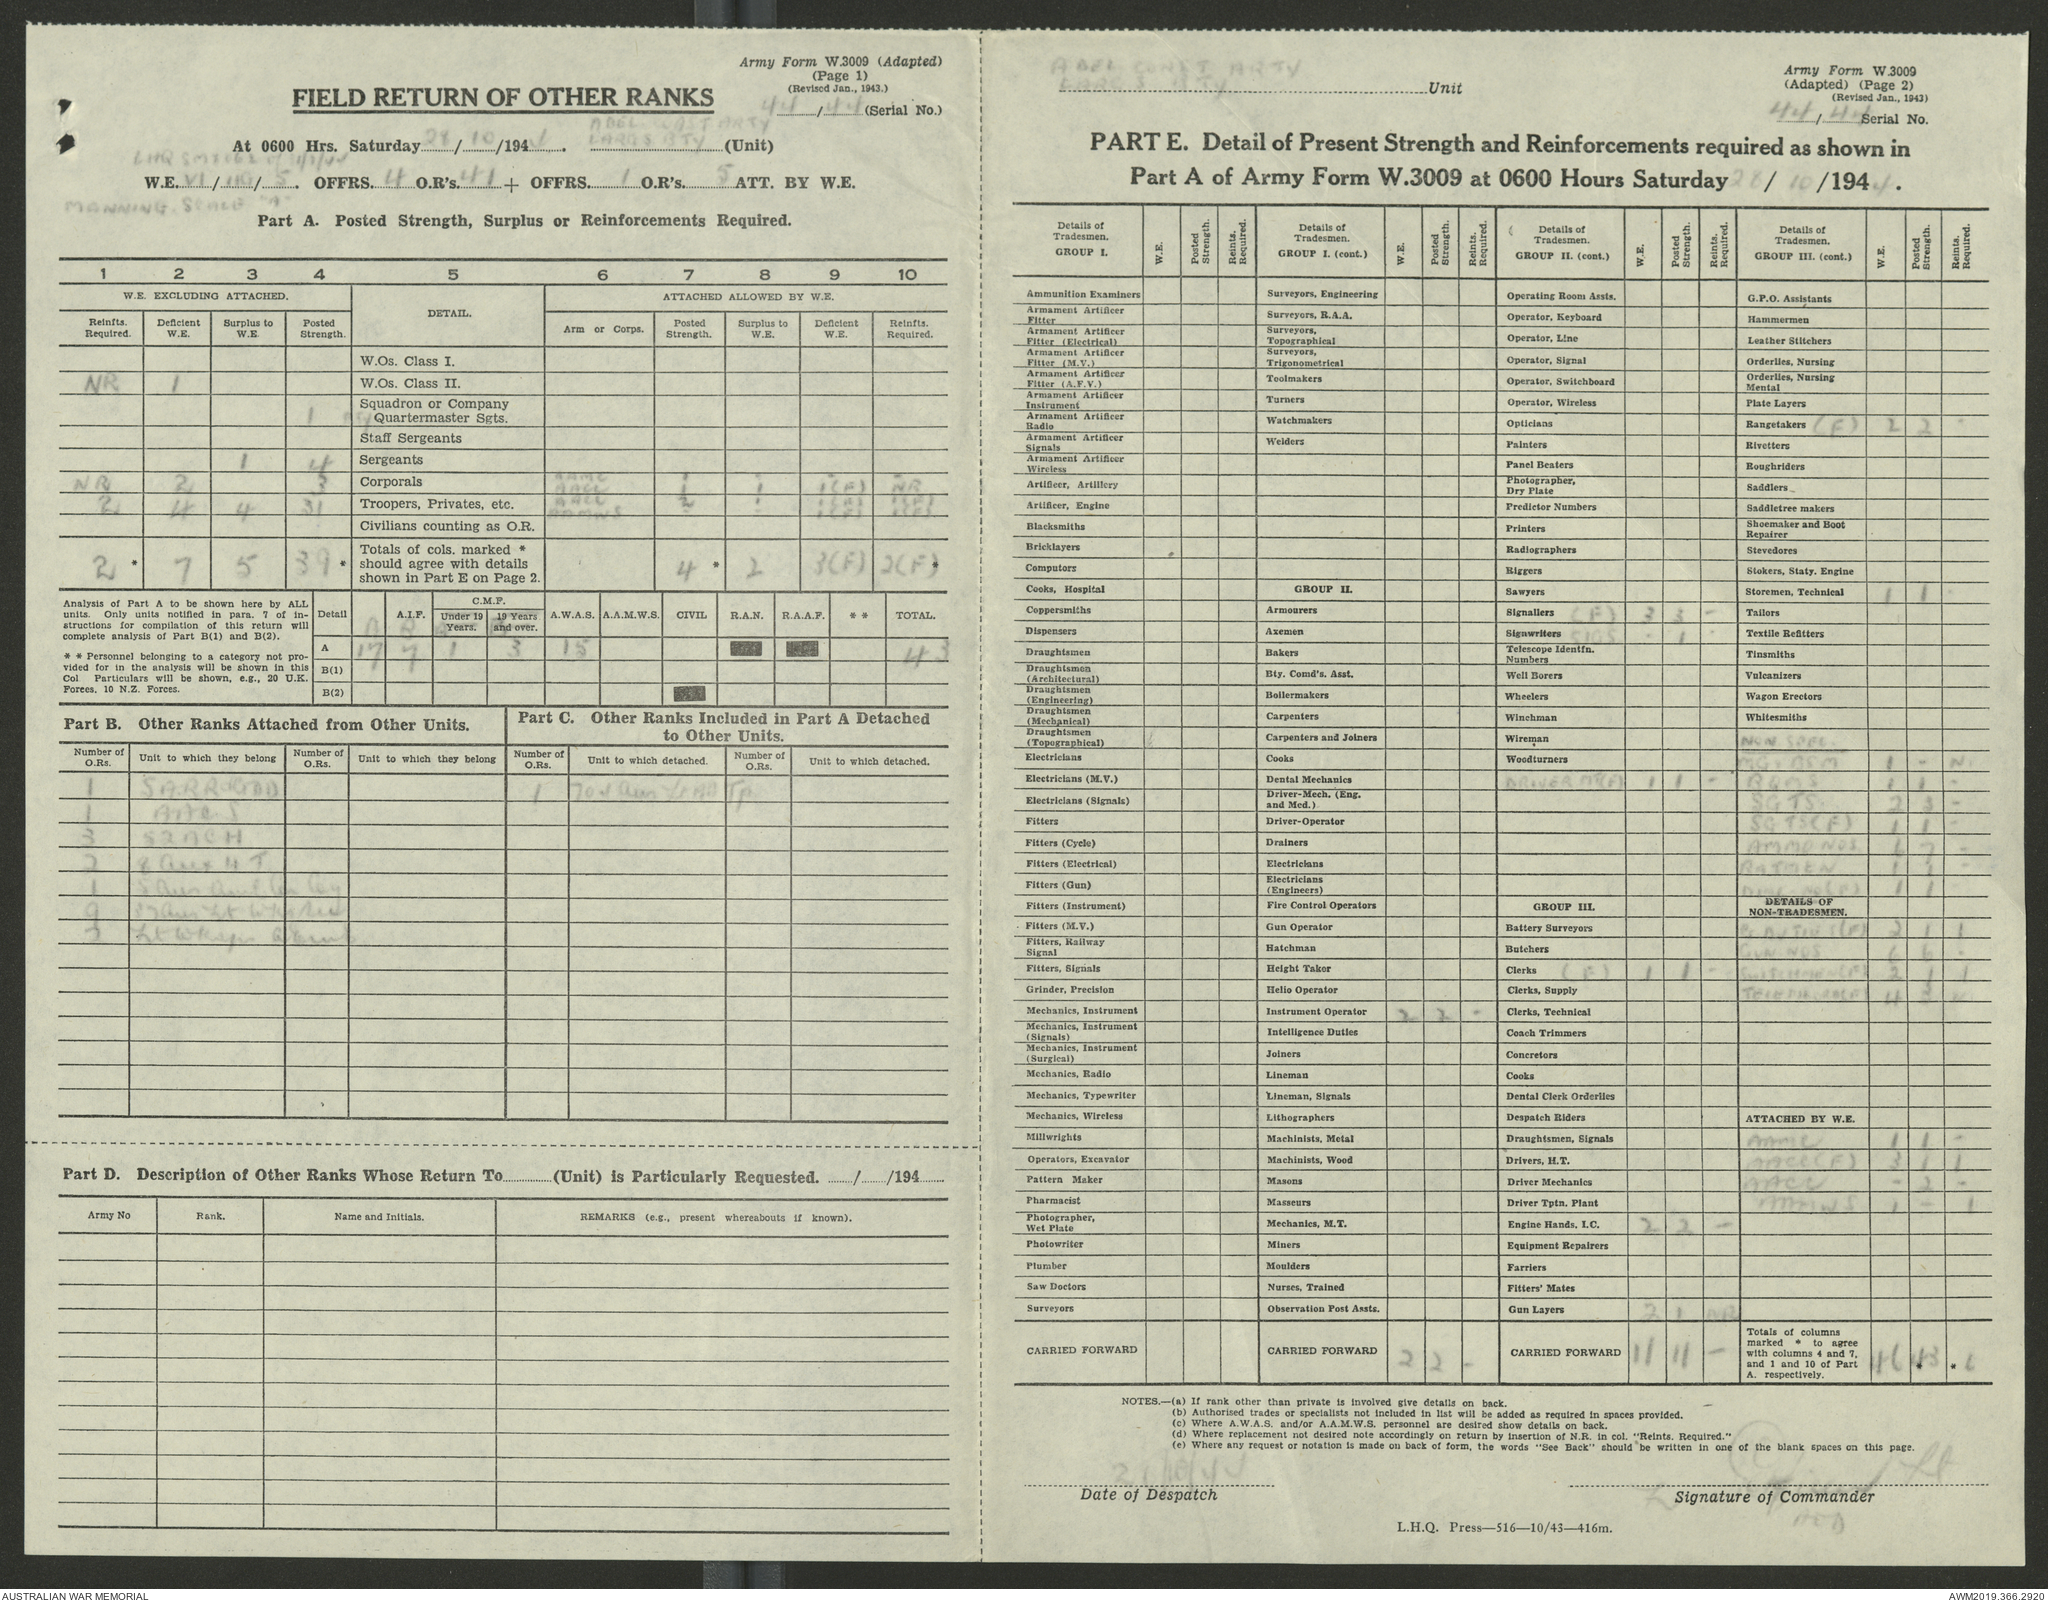 Army Form W.3009 (Adapted)
(Page 1)
(Revised Jan., 1943.)
44/44 (Serial No.)
FIELD RETURN OF OTHER RANKS
At 0600 Hrs. Saturday 28/10/1944. (Unit)
LARGS BTY
W.E. VI / / 5. OFFRS. 4 O.R's. 41 + OFFRS. 1 O.R's. 5 ATT. BY W.E.
MANNING SCALE "A"
Part A. Posted Strength, Surplus or Reinforcements Required.
1 2 3 4 5 6 7 8 9 10
W.E. EXCLUDING ATTACHED. DETAIL. ATTACHED ALLOWED BY W.E.
Reinfts. Required. Deficient W.E. Surplus to W.E. Posted Strength. Arm or Corps. Posted Strength. Surplus to W.E. Deficient W.E. Reinfts. Required.
W.Os. Class I.
NR 1 W.Os. Class II.
1 Squadron or Company Quartermaster Sgts.
Staff Sergeants
1 4 Sergeants
NR 2 3 Corporals
2 4 4 31 Troopers, Privates, etc.
Civilians counting as O.R.
2 * 7 5 39 * Totals of cols. marked * should agree with details shown in Part E on Page 2. 4 * 2 3(F) 2(F) *
Analysis of Part A to be shown here by ALL units. Only units notified in para. 7 of instructions for compilation of this return will complete analysis of Part B(1) and B(2).
* * Personnel belonging to a category not provided for in the analysis will be shown in this Col. Particulars will be shown, e.g., 20 U.K. Forces, 10 N.Z. Forces.
Detail A.I.F. C.M.F. Under 19 Years. 19 Years and over. A.W.A.S. A.A.M.W.S. CIVIL R.A.N. R.A.A.F. * * TOTAL.
A 17 7 1 3 15 43
B(1)
B(2)
Part B. Other Ranks Attached from Other Units.
Number of O.Rs. Unit to which they belong Number of O.Rs. Unit to which they belong
1
1
3
2
1
9
3
Part C. Other Ranks Included in Part A Detached to Other Units.
Number of O.Rs. Unit to which detached. Number of O.Rs. Unit to which detached.
1
Part D. Description of Other Ranks Whose Return To (Unit) is Particularly Requested. / /194
Army No Rank. Name and Initials. REMARKS (e.g., present whereabouts if known).
Unit
LARGS BTY
Army Form W.3009
(Adapted) (Page 2)
(Revised Jan., 1943)
44/44 Serial No.
PART E. Detail of Present Strength and Reinforcements required as shown in
Part A of Army Form W.3009 at 0600 Hours Saturday 28/10/1944.
Details of Tradesmen. GROUP I. W.E. Posted Strength. Reints. Required.
Ammunition Examiners
Armament Artificer Fitter
Armament Artificer Fitter (Electrical)
Armament Artificer Fitter (M.V.)
Armament Artificer Fitter (A.F.V.)
Armament Artificer Instrument
Armament Artificer Radio
Armament Artificer Signals
Armament Artificer Wireless
Artificer, Artillery
Artificer, Engine
Blacksmiths
Bricklayers
Computors
Cooks, Hospital
Coppersmiths
Dispensers
Draughtsmen
Draughtsmen (Architectural)
Draughtsmen (Engineering)
Draughtsmen (Mechanical)
Draughtsmen (Topographical)
Electricians
Electricians (M.V.)
Electricians (Signals)
Fitters
Fitters (Cycle)
Fitters (Electrical)
Fitters (Gun)
Fitters (Instrument)
Fitters (M.V.)
Fitters, Railway Signal
Fitters, Signals
Grinder, Precision
Mechanics, Instrument
Mechanics, Instrument (Signals)
Mechanics, Instrument (Surgical)
Mechanics, Radio
Mechanics, Typewriter
Mechanics, Wireless
Millwrights
Operators, Excavator
Pattern Maker
Pharmacist
Photographer, Wet Plate
Photowriter
Plumber
Saw Doctors
Surveyors
CARRIED FORWARD
Details of Tradesmen. GROUP I. (cont.) W.E. Posted Strength. Reints. Required.
Surveyors, Engineering
Surveyors, R.A.A.
Surveyors, Topographical
Surveyors, Trigonometrical
Toolmakers
Turners
Watchmakers
Welders
GROUP II.
Armourers
Axemen
Bakers
Bty. Comd's. Asst.
Boilermakers
Carpenters
Carpenters and Joiners
Cooks
Dental Mechanics
Driver-Mech. (Eng. and Med.)
Driver-Operator
Drainers
Electricians
Electricians (Engineers)
Fire Control Operators
Gun Operator
Hatchman
Height Taker
Helio Operator
Instrument Operator 2 2 -
Intelligence Duties
Joiners
Lineman
Lineman, Signals
Lithographers
Machinists, Metal
Machinists, Wood
Masons
Masseurs
Mechanics, M.T.
Miners
Moulders
Nurses, Trained
Observation Post Assts.
CARRIED FORWARD 2 2 -
Details of Tradesmen. GROUP II. (cont.) W.E. Posted Strength. Reints. Required.
Operating Room Assts.
Operator, Keyboard
Operator, Line
Operator, Signal
Operator, Switchboard
Operator, Wireless
Opticians
Painters
Panel Beaters
Photographer, Dry Plate
Predictor Numbers
Printers
Radiographers
Riggers
Sawyers
Signallers (F) 3 3 -
Signwriters SIGS - 1 -
Telescope Identfn. Numbers
Well Borers
Wheelers
Winchman
Wireman
Woodturners
DRIVER MT(F) 1 1 -
GROUP III.
Battery Surveyors
Butchers
Clerks (F) 1 1 -
Clerks, Supply
Clerks, Technical
Coach Trimmers
Concretors
Cooks
Dental Clerk Orderlies
Despatch Riders
Draughtsmen, Signals
Drivers, H.T.
Driver Mechanics
Driver Tptn. Plant
Engine Hands, I.C. 2 2 -
Equipment Repairers
Farriers
Fitters' Mates
Gun Layers 2 1 NR
CARRIED FORWARD 11 11 -
Details of Tradesmen. GROUP III. (cont.) W.E. Posted Strength. Reints. Required.
G.P.O. Assistants
Hammermen
Leather Stitchers
Orderlies, Nursing
Orderlies, Nursing Mental
Plate Layers
Rangetakers (F) 2 2 -
Rivetters
Roughriders
Saddlers
Saddletree makers
Shoemaker and Boot Repairer
Stevedores
Stokers, Staty. Engine
Storemen, Technical 1 1 -
Tailors
Textile Refitters
Tinsmiths
Vulcanizers
Wagon Erectors
Whitesmiths
NON SPEC.
1 -
BQMS 1 1 -
SGTS 2 3 -
SGTS(F) 1 1 -
AMMO NOS 6 7 -
BATMEN 1 1 -
1 1
DETAILS OF NON-TRADESMEN.
2 1 1
GUN NOS 6 6 -
SWITCHMEN(F) 2 1 1
4 3
ATTACHED BY W.E.
AAMC 1 1 -
AACC(F) 3 1 1
AACC - 2 -
AAMWS 1 - 1
Totals of columns marked * to agree with columns 4 and 7, and 1 and 10 of Part A. respectively. 43 * *
NOTES.—(a) If rank other than private is involved give details on back.
(b) Authorised trades or specialists not included in list will be added as required in spaces provided.
(c) Where A.W.A.S. and/or A.A.M.W.S. personnel are desired show details on back.
(d) Where replacement not desired note accordingly on return by insertion of N.R. in col. "Reints. Required."
(e) Where any request or notation is made on back of form, the words "See Back" should be written in one of the blank spaces on this page.
Date of Despatch
Signature of Commander
L.H.Q. Press—516—10/43—416m.
AUSTRALIAN WAR MEMORIAL
AWM2019.366.2920